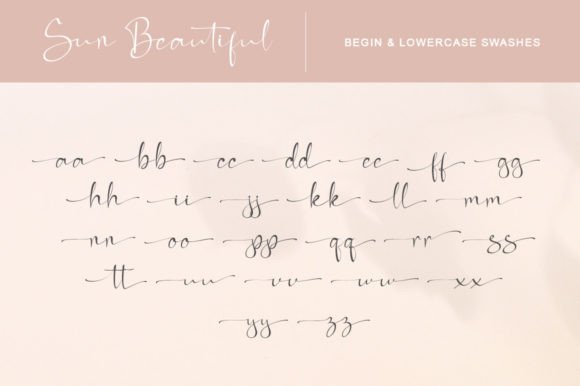 Sun Beautiful
BEGIN & LOWERCASE SWASHES
aa bb cc dd cc ff gg
hh ii jj kk ll mm
nn oo pp qq rr ss
tt uu vv ww xx
yy zz